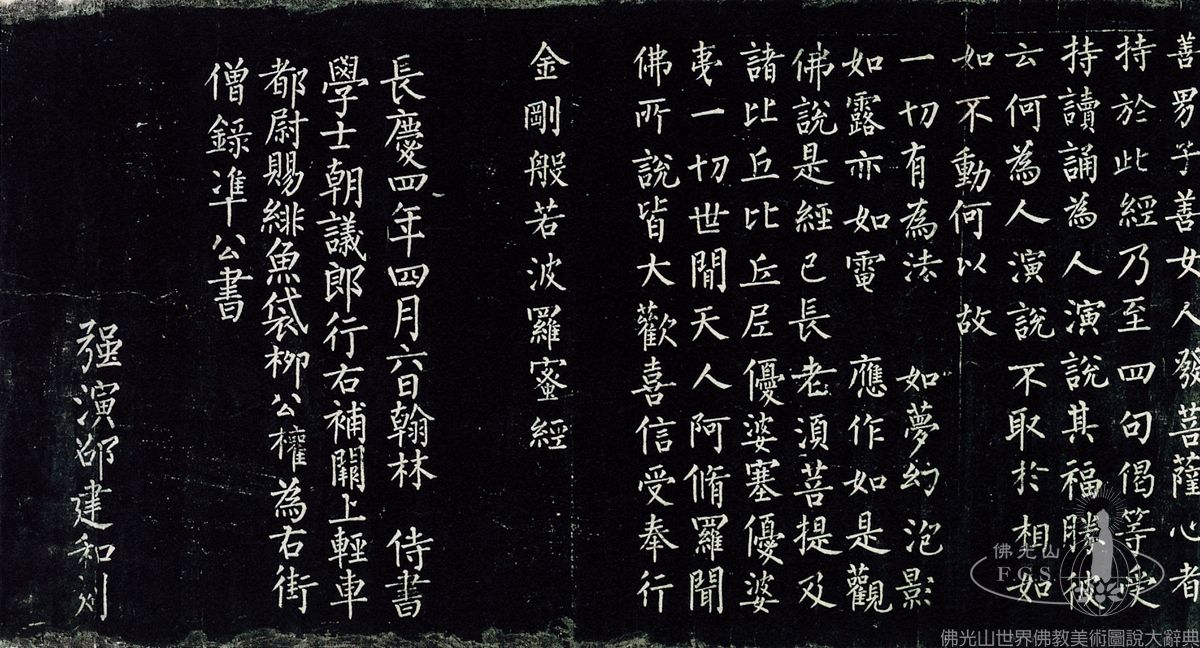 善男子善女人發菩薩心者
持於此經乃至四句偈等受
持讀誦為人演說其福勝彼
云何為人演說不取於相如
如不動何以故
一切有為法 如夢幻泡影
如露亦如電 應作如是觀
佛說是經已長老須菩提及
諸比丘比丘尼優婆塞優婆
夷一切世間天人阿脩羅聞
佛所說皆大歡喜信受奉行
金剛般若波羅蜜經
長慶四年四月六日翰林 侍書
學士朝議郎行右補闕上輕車
都尉賜緋魚袋柳公權為右街
僧錄凖公書
强演邵建和刻
佛光山
F.G.S.
佛光山世界佛教美術圖說大辭典